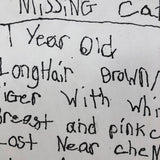 MISSING Cat
1 Year Old
LongHair Brown/
Tiger With Whi
Breast and pink c
Lost Near chem